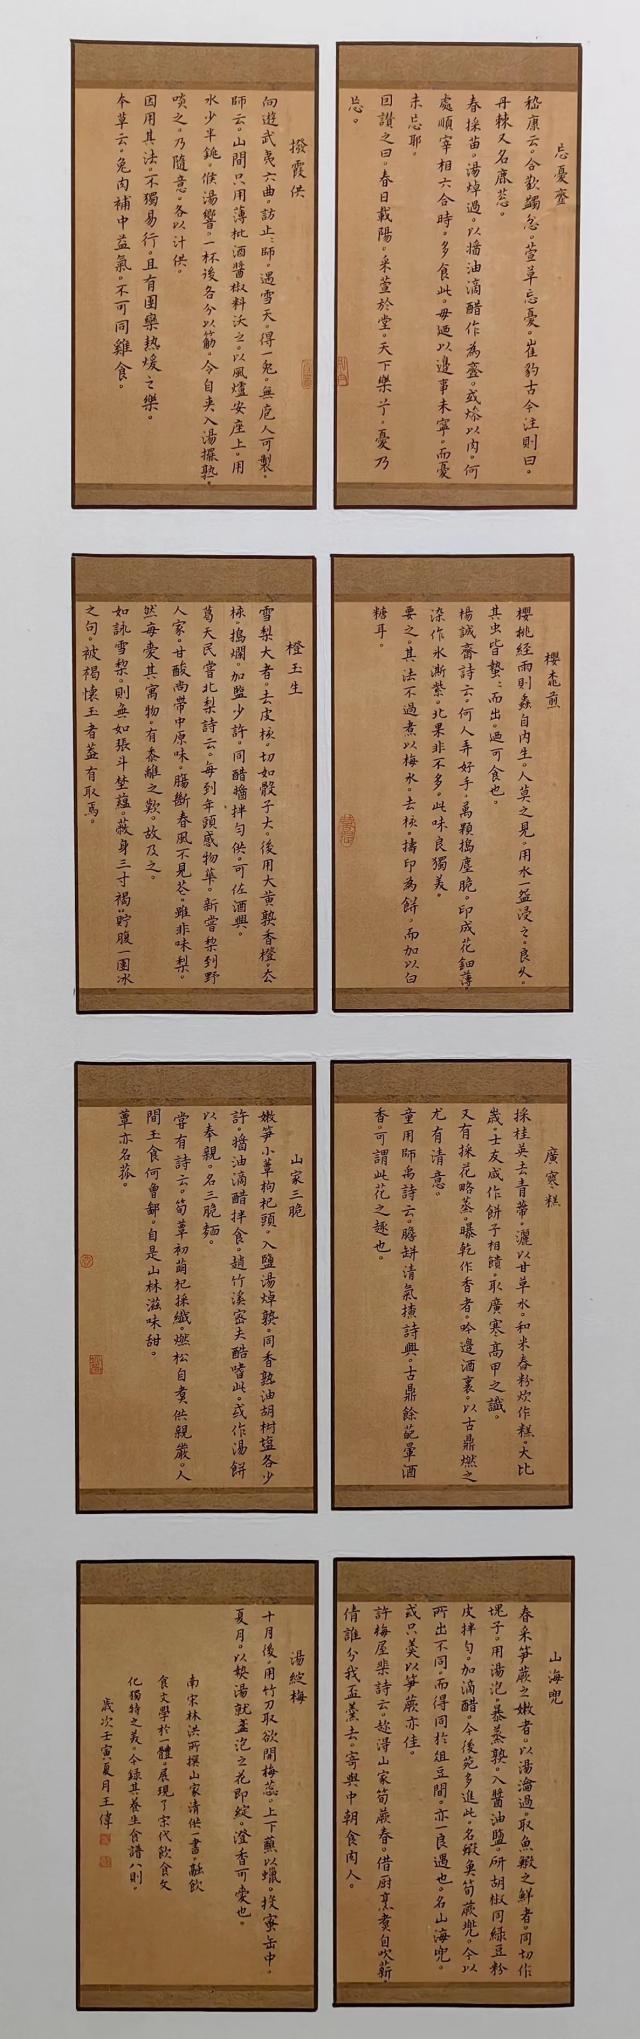 忘憂虀
嵇康云。合歡蠲忿。萱草忘憂。崔豹古今注則曰。
丹棘又名鹿葱。
春採苗。湯焯過。以醬油滴醋作為虀。或燥以肉。何
處順宰相六合時。多食此。毋迺以邊事未寧。而憂
未忘耶。
因讚之曰。春日載陽。采萱於堂。天下樂兮。憂乃
忘。
撥霞供
向遊武夷六曲。訪止止師。遇雪天。得一兔。無庖人可製。
師云。山間只用薄枇酒醬椒料沃之。以風爐安座上。用
水少半銚。候湯響。一杯後各分以筯。令自夹入湯擺熟。
啖之。乃隨意。各以汁供。
因用其法。不獨易行。且有團欒熱煖之樂。
本草云。兔肉補中益氣。不可同雞食。
櫻桃煎
櫻桃経雨則蟲自内生。人莫之見。用水一盌浸之。良久。
其虫皆蟄蟄而出。迺可食也。
楊誠齋詩云。何人弄好手。萬顆搗塵脆。印成花鈿薄。
染作氷澌紫。北果非不多。此味良獨美。
要之。其法不過煮以梅水。去核。擣印為餅。而加以白
糖耳。
橙玉生
雪梨大者。去皮核。切如骰子大。後用大黄熟香橙。去
核。搗爛。加鹽少許。同醋醬拌勻供。可佐酒興。
葛天民嘗北梨詩云。每到年頭感物華。新嘗梨到野
人家。甘酸尚帶中原味。腸斷春風不見花。雖非味梨。
然每愛其寓物。有黍離之歎。故及之。
如詠雪梨。則無如張斗埜蕴。蔽身三寸褐。貯腹一團冰
之句。被褐懷玉者。蓋有取焉。
廣寒糕
採桂英。去青蒂。灑以甘草水。和米舂粉炊作糕。大比
歲。士友咸作餅子相饋。取廣寒高甲之讖。
又有採花略蒸。曝乾作香者。吟邊酒裏。以古鼎燃之
尤有清意。
童用師禹詩云。膽缾清氣撩詩興。古鼎餘葩暈酒
香。可謂此花之趣也。
山家三脆
嫩笋小蕈枸杞頭。入鹽湯焯熟。同香熟油胡椒塩各少
許。醬油滴醋拌食。趙竹溪密夫酷嗜此。或作湯餅
以奉親。名三脆麵。
嘗有詩云。筍蕈初萌杞採纖。燃松自煮供親嚴。人
間玉食何曾鄙。自是山林滋味甜。
蕈亦名菰。
山海兜
春采笋蕨之嫩者。以湯瀹過。取魚蝦之鮮者。同切作
塊子。用湯泡。暴蒸熟。入醬油鹽。研胡椒同綠豆粉
皮拌勻。加滴醋。今後苑多進此。名蝦魚筍蕨兠。今以
所出不同。而得同於俎豆間。亦一良遇也。名山海兜。
或只羹以筍蕨亦佳。
許梅屋棐詩云。趂得山家筍蕨春。借厨烹煮自吹薪。
倩誰分我盃羹去。寄與中朝食肉人。
湯綻梅
十月後。用竹刀取欲開梅蕊。上下蘸以蠟。投蜜缶中。
夏月。以熱湯就盞泡之花即綻。澄香可愛也。
南宋林洪所撰山家清供一書。融飲
食文學於一體。展現了宋代飲食文
化獨特之美。今録其養生食譜八則。
歲次壬寅夏月王偉